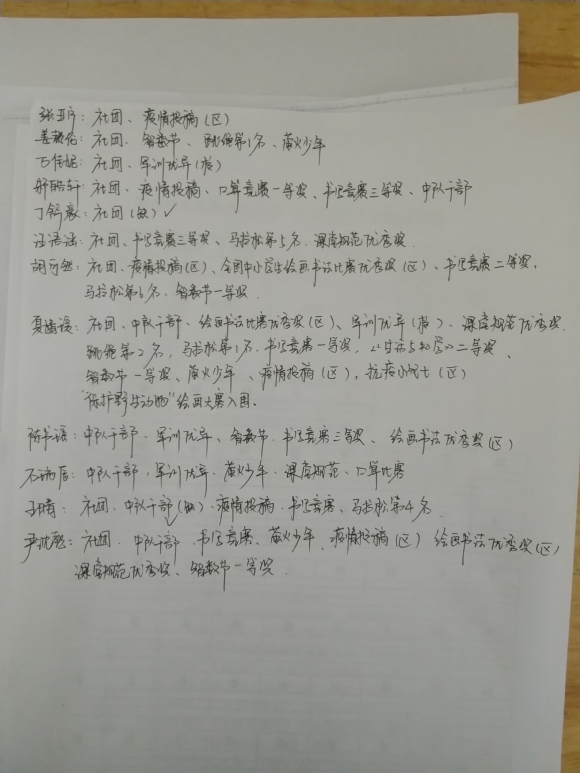 张亚宁：社团、疫情投稿（区）
姜 ：社团、智数节、跳绳第1名、萤火少年
 ：社团、军训优异（校）
 ：社团、疫情投稿、口算竞赛一等奖、书写竞赛三等奖、中队干部
丁 ：社团（缺）✓
汪语涵：社团、书写竞赛三等奖、马拉松第5名、课席规范优秀奖
胡可然：社团、疫情投稿（区）、全国中小学生绘画书法比赛优秀奖（区）、书写竞赛二等奖，
马拉松第6名、智数节一等奖
夏 ：社团、中队干部、绘画书法比赛优秀奖（区）、军训优异（校）、课席规范优秀奖
跳绳第2名，马拉松第1名、书写竞赛一等奖，《生活与科学》二等奖、
智数节一等奖、萤火少年、疫情投稿（区），抗疫小战士（区）
“保护野生动物”绘画大赛入围。
陈书瑶：中队干部、军训优异、智数节、书写竞赛三等奖、绘画书法优秀奖（区）
石 ：中队干部，军训优异、萤火少年、课席规范、口算比赛
 ：社团、中队干部（缺）、疫情投稿、书写竞赛、马拉松第4名
尹 ：社团、中队干部、书写竞赛、萤火少年、疫情投稿（区）绘画书法优秀奖（区），
课席规范优秀奖、智数节一等奖